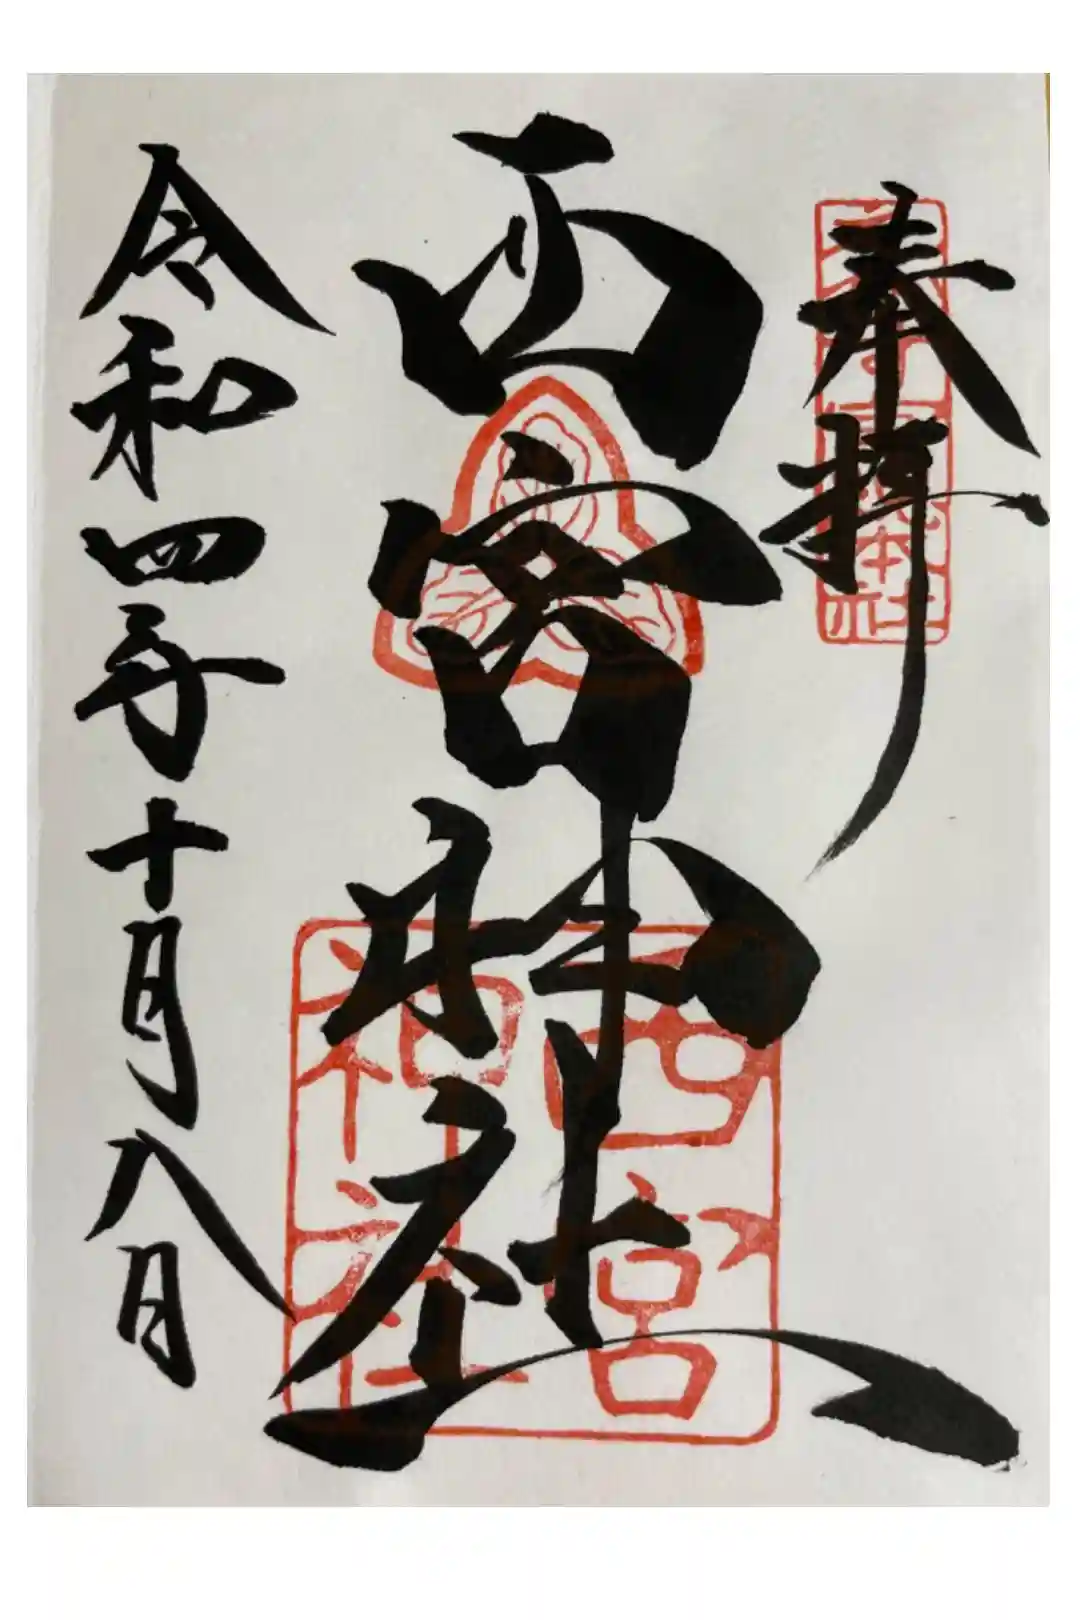 奉拝
西宮神社
西宮神社
令和四年十月八日